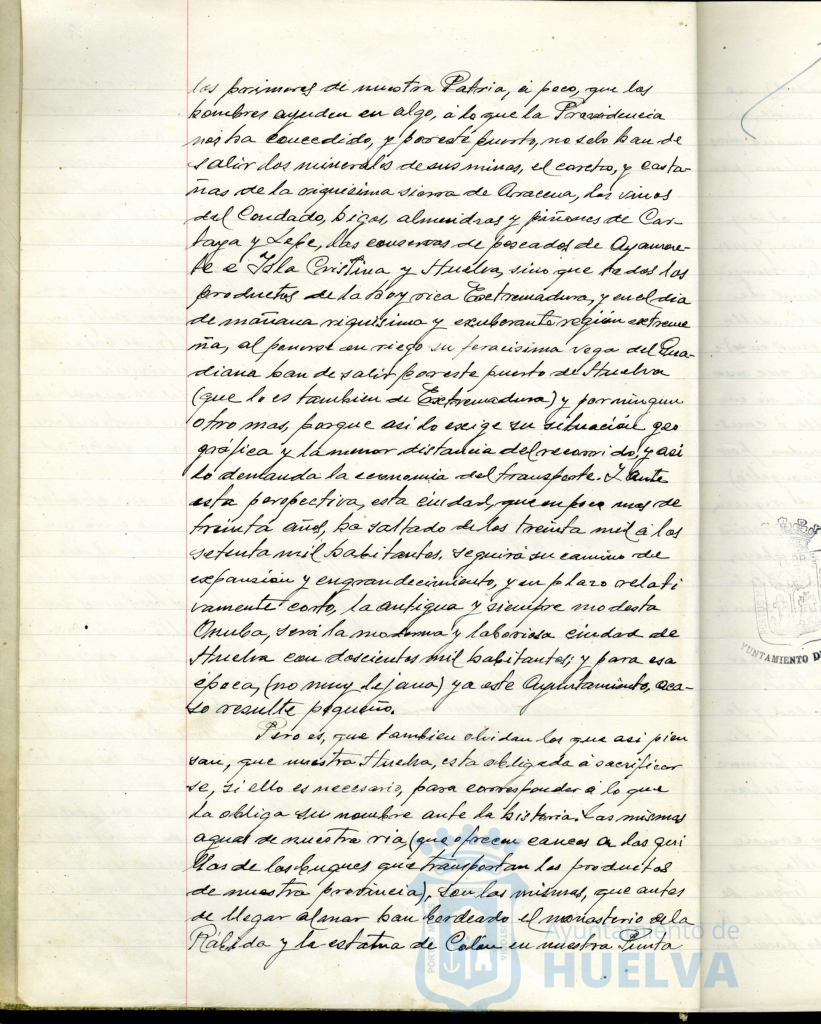 los primeros de nuestra Patria, á poco, que los
hombres ayuden en algo, á lo que la Providencia
nos ha concedido, y por este puerto, no solo han de
salir los minerales de sus minas, el corcho, y casta-
ñas de la riquisima sierra de Aracena, los vinos
del Condado, higos, almendras y piñones de Car-
taya y Lepe, las conservas de pescados de Ayamon-
te e Isla Cristina y Huelva, sino que todos los
productos de la hoy rica Extremadura, y en el dia
de mañana riquisima y exuberante región extreme
ña, al ponerse en riego su feracisima vega del Gua-
diana han de salir por este puerto de Huelva
(que lo es tambien de Extremadura) y por ningun
otro mas, porque asi lo exige su situación geo
gráfica y la menor distancia del recorrido, y asi
lo demanda la economia del transporte. Y ante
esta perspectiva, esta ciudad, que en poco mas de
treinta años, ha saltado de los treinta mil á los
setenta mil habitantes, seguirá su camino de
expansión y engrandecimiento, y en plazo relati
vamente corto, la antigua y siempre modesta
Onuba, será la moderna y laboriosa ciudad de
Huelva con doscientos mil habitantes; y para esa
época, (no muy lejana) ya este Ayuntamiento, aca-
so resulte pequeño.
Pero es, que tambien olvidan los que asi pien
san, que nuestra Huelva, esta obligada á sacrificar
se, si ello es necesario, para corresponder á lo que
la obliga su nombre ante la historia. Las mismas
aguas de nuestra ria (que ofrecen cauces a las qui
llas de los buques que transportan los productos
de nuestra provincia), son las mismas, que antes
de llegar al mar han bordeado el monasterio de la
Rábida y la estatua de Colón en nuestra Punta
YUNTAMIENTO DE
Ayuntamiento de
HUELVA